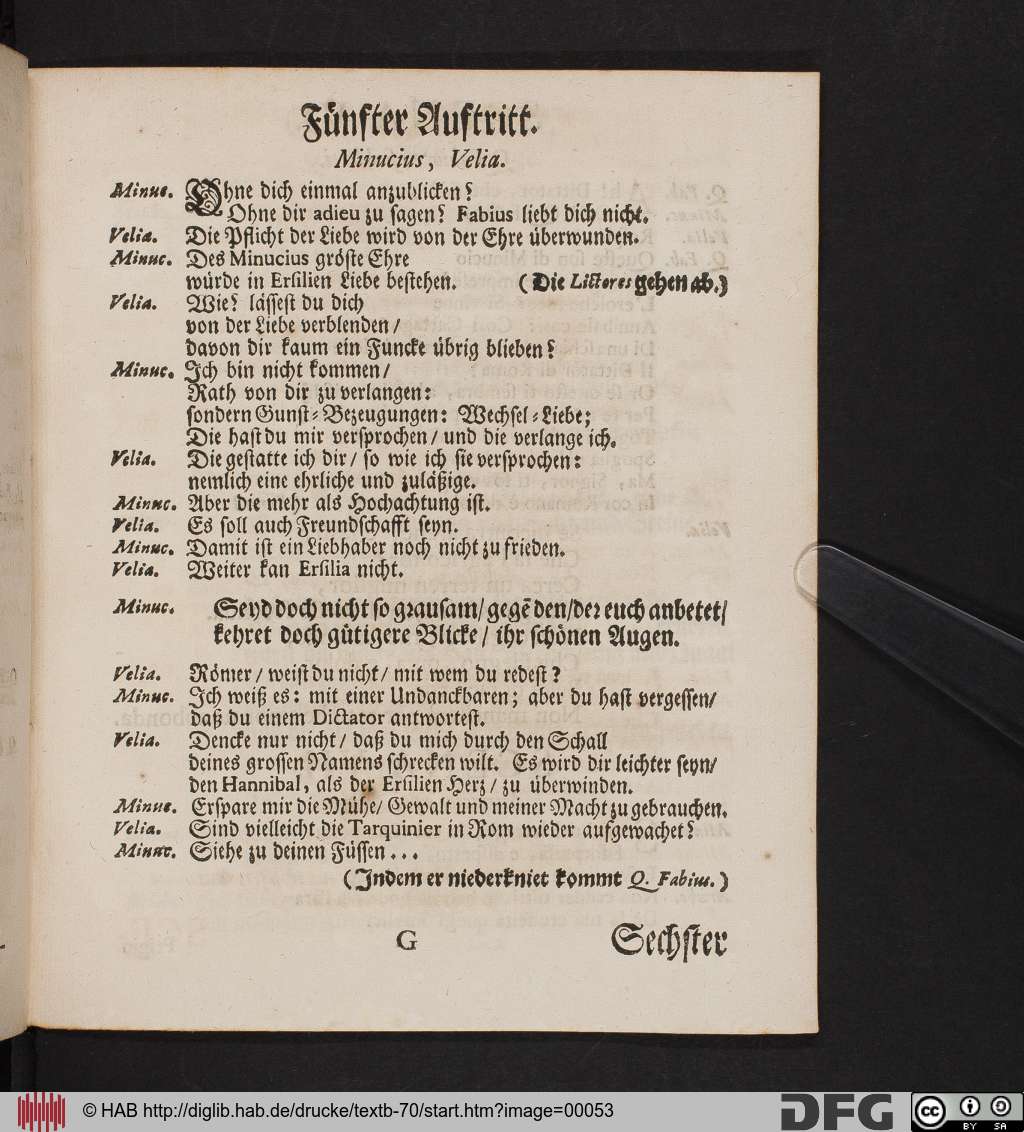 Fünfter Auftritt.
Minucius, Velia.
Minuc. Ohne dich einmal anzublicken?
Ohne dir adieu zu sagen? Fabius liebt dich nicht.
Velia. Die Pflicht der Liebe wird von der Ehre überwunden.
Minuc. Des Minucius gröste Ehre
würde in Ersilien Liebe bestehen. (Die Lictores gehen ab.)
Velia. Wie? lässest du dich
von der Liebe verblenden /
davon dir kaum ein Funcke übrig blieben?
Minuc. Ich bin nicht kommen /
Rath von dir zu verlangen:
sondern Gunst-Bezeugungen: Wechsel-Liebe;
Die hast du mir versprochen / und die verlange ich.
Velia. Die gestatte ich dir / so wie ich sie versprochen:
nemlich eine ehrliche und zuläßige.
Minuc. Aber die mehr als Hochachtung ist.
Velia. Es soll auch Freundschafft seyn.
Minuc. Damit ist ein Liebhaber noch nicht zu frieden.
Velia. Weiter kan Ersilia nicht.
Minuc. Seyd doch nicht so grausam / gegē den / der euch anbetet /
kehret doch gütigere Blicke / ihr schönen Augen.
Velia. Römer / weist du nicht / mit wem du redest?
Minuc. Ich weiß es: mit einer Undanckbaren; aber du hast vergessen /
daß du einem Dictator antwortest.
Velia. Dencke nur nicht / daß du mich durch den Schall
deines grossen Namens schrecken wilt. Es wird dir leichter seyn /
den Hannibal, als der Ersilien Herz / zu überwinden.
Minuc. Erspare mir die Mühe / Gewalt und meiner Macht zu gebrauchen.
Velia. Sind vielleicht die Tarquinier in Rom wieder aufgewachet?
Minuc. Siehe zu deinen Füssen ...
(Indem er niederkniet kommt Q. Fabius.)
G Sechster
© HAB http://diglib.hab.de/drucke/textb-70/start.htm?image=00053
DFG
cc BY SA